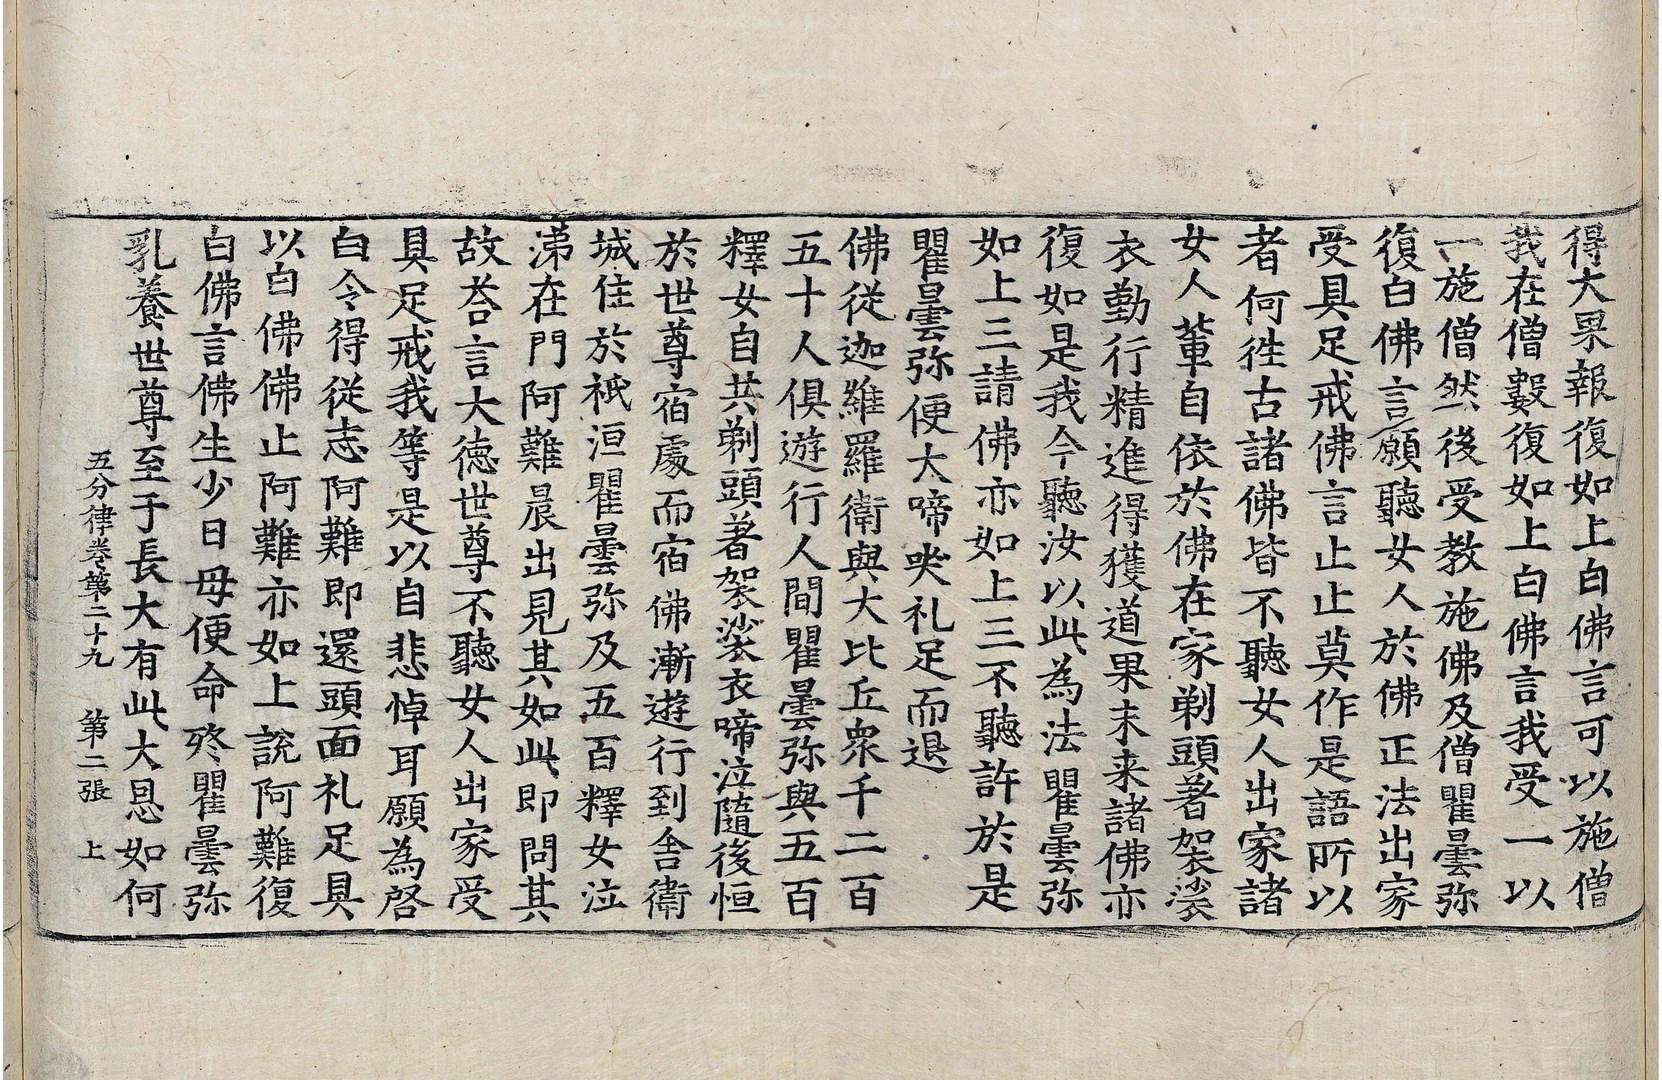 得大果報復如上白佛言可以施僧
我在僧數復如上白佛言我受一以
一施僧然後受教施佛及僧瞿曇弥
復白佛言願聽女人於佛正法出家
受具足戒佛言止止莫作是語所以
者何徃古諸佛皆不聽女人出家諸
女人軰自依於佛在家剃頭著袈裟
衣勤行精進得獲道果未来諸佛亦
復如是我今聽汝以此為法瞿曇弥
如上三請佛亦如上三不聽許於是
瞿曇弥便大啼哭礼足而退
佛從迦維羅衛與大比丘衆千二百
五十人俱遊行人間瞿曇弥與五百
釋女自共剃頭著袈裟衣啼泣隨後恒
於世尊宿處而宿佛漸遊行到舎衛
城住於祇洹瞿曇弥及五百釋女泣
涕在門阿難晨出見其如此即問其
故荅言大德世尊不聽女人出家受
具足戒我等是以自悲悼耳願為啓
白令得從志阿難即還頭面礼足具
以白佛佛止阿難亦如上說阿難復
白佛言佛生少日母便命終瞿曇弥
乳養世尊至于長大有此大恩如何
五分律卷第二十九 第二張 上